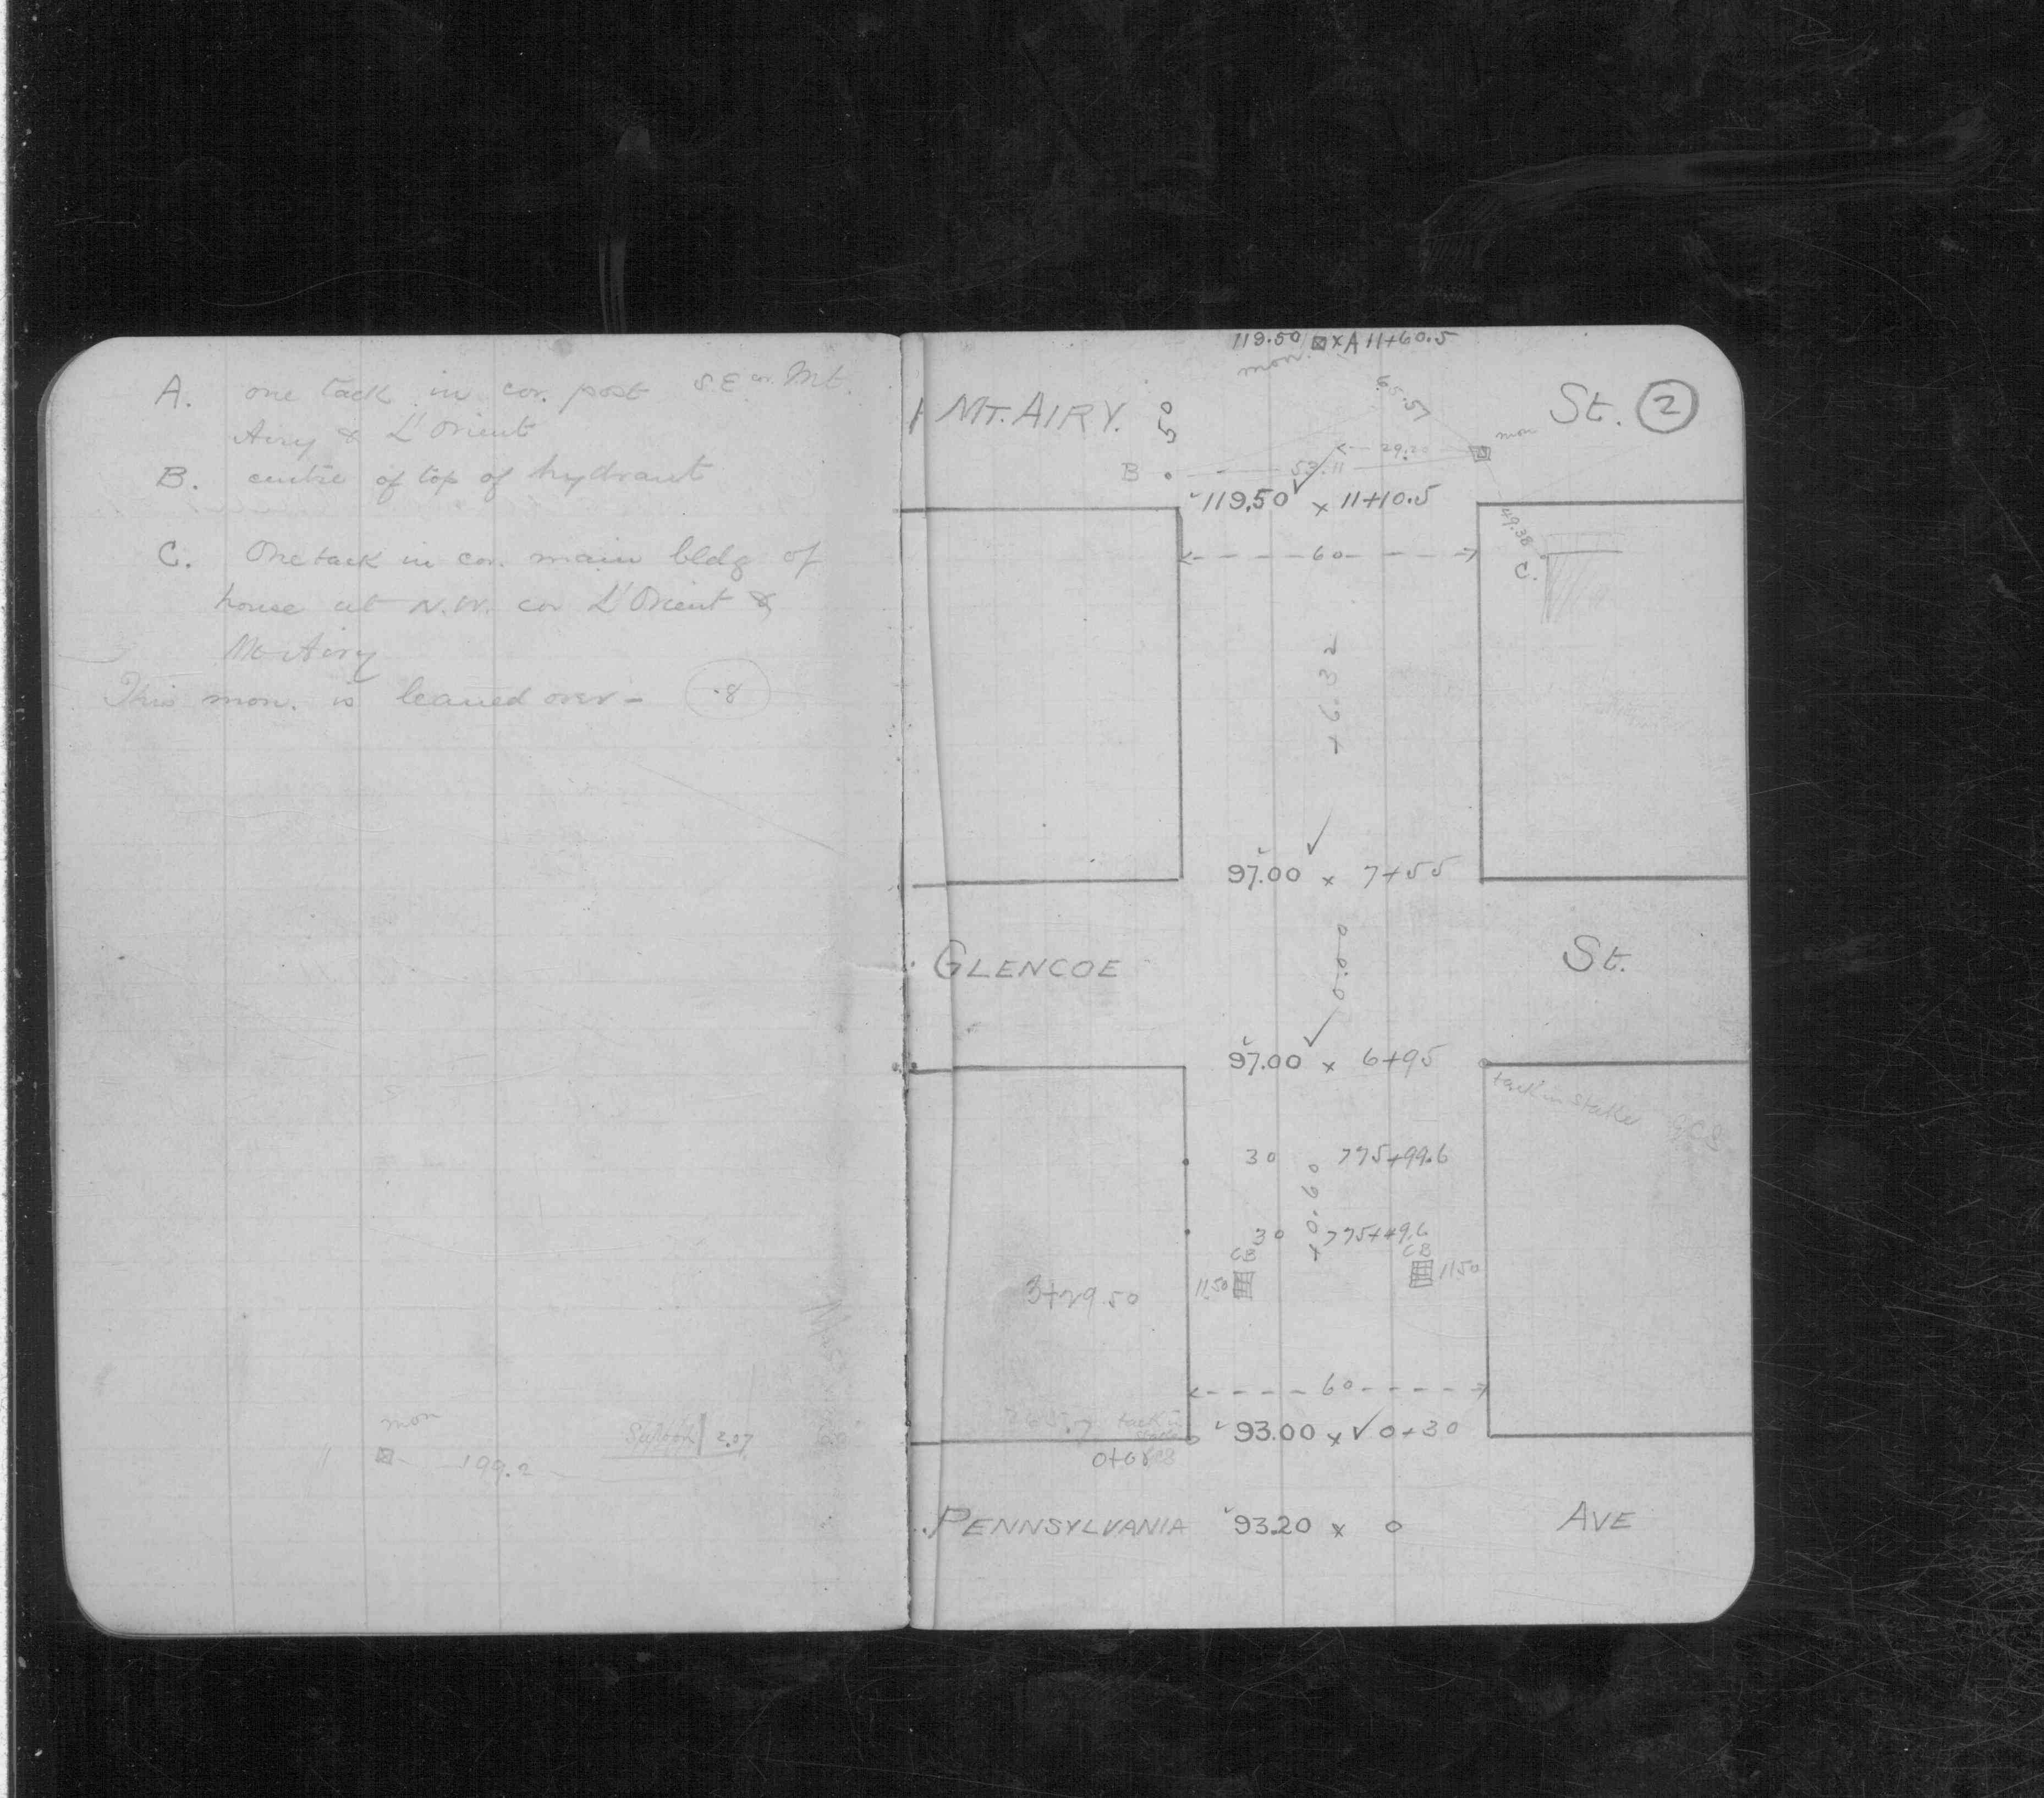 A. one tack in cor. post S.E. cor. Mt.
Airy & L'Orient
B. centre of top of hydrant
C. One tack in cor. main bldg of
house at N.W. cor L'Orient &
Mt Airy
This mon. is leaned over - .8
mon
199.2
2.07
119.50 x A 11+60.5
mon.
65.57
MT. AIRY. 50 St. 2
mon
29.20
B 53.11
119.50 x 11+10.5
49.38
60
C.
+6.32
97.00 x 7+55
0.00
GLENCOE St.
97.00 x 6+95
tack in stake
30 775+99.6
+0.60
30 775+49.6
CB CB
1150 1150
3+29.50
60
tack in
stake
93.00 x 0+30
PENNSYLVANIA 93.20 x 0 AVE